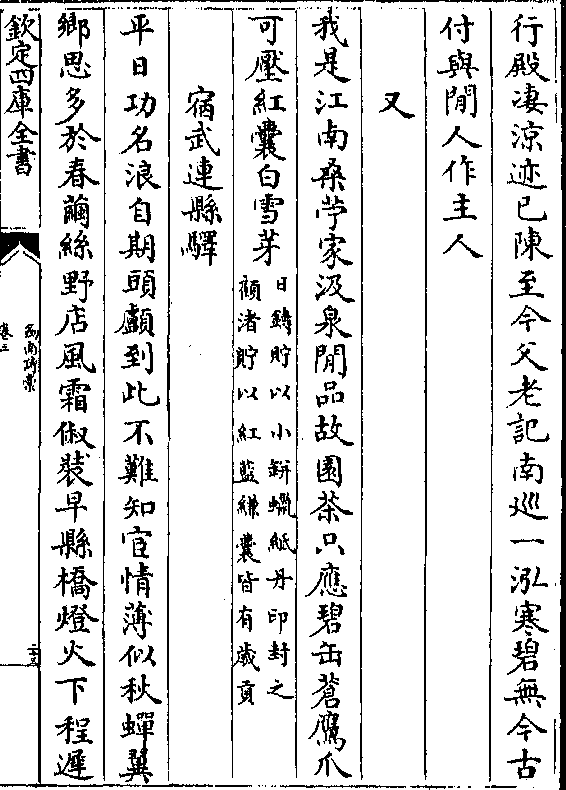 行殿凄涼迹已陳至今父老記南巡一泓寒碧無今古
付與閒人作主人
又
我是江南桑苧家汲泉閒品故園茶只應碧缶蒼鷹爪
可壓紅囊白雪芽
日鑄貯以小缾蠟紙丹印封之
顧渚貯以紅藍縑囊皆有歲貢
宿武連縣驛
平日功名浪自期頭顱到此不難知宦情薄似秋蟬翼
鄉思多於春繭絲野店風霜俶裝早縣橋燈火下程遲
欽定四庫全書
劍南詩稾
卷三